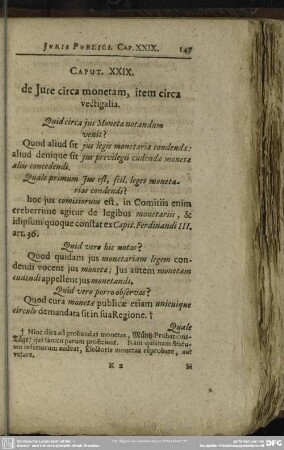 JURIS PUBLICI. CAP. XXIX. 147
CAPUT. XXIX.
de Jure circa monetam, item circa
vectigalia.
Quid circa jus Monetæ notandum
venit?
Quod aliud sit jus legis monetariæ condendæ:
aliud denique sit jus privilegii cudendæ monetæ
aliis concedendi.
Quale primum Jus est, scil. leges moneta-
rias condendi?
hoc jus comitiorum est, in Comitiis enim
creberrime agitur de legibus monetariis, &
idipsum quoque constat ex Capit. Ferdinandi III.
art. 36.
Quid vero hic notas?
Quod quidam jus monetariam legem con-
dendi vocent jus monetæ; Jus autem monetam
cudendi appellent jus monetandi.
Quid vero porro observas?
Quod cura monetæ publicæ etiam unicuique
circulo demandata sit in sua Regione. †
Quale
† Hinc dies ad probandas monetas, Müntz-Probations-
Täge/ qui tamen parum proficiunt. Nam quinam Statu-
um inferiorum audeat, Electoris monetas reprobare, aut
vetare.
K 2 Si